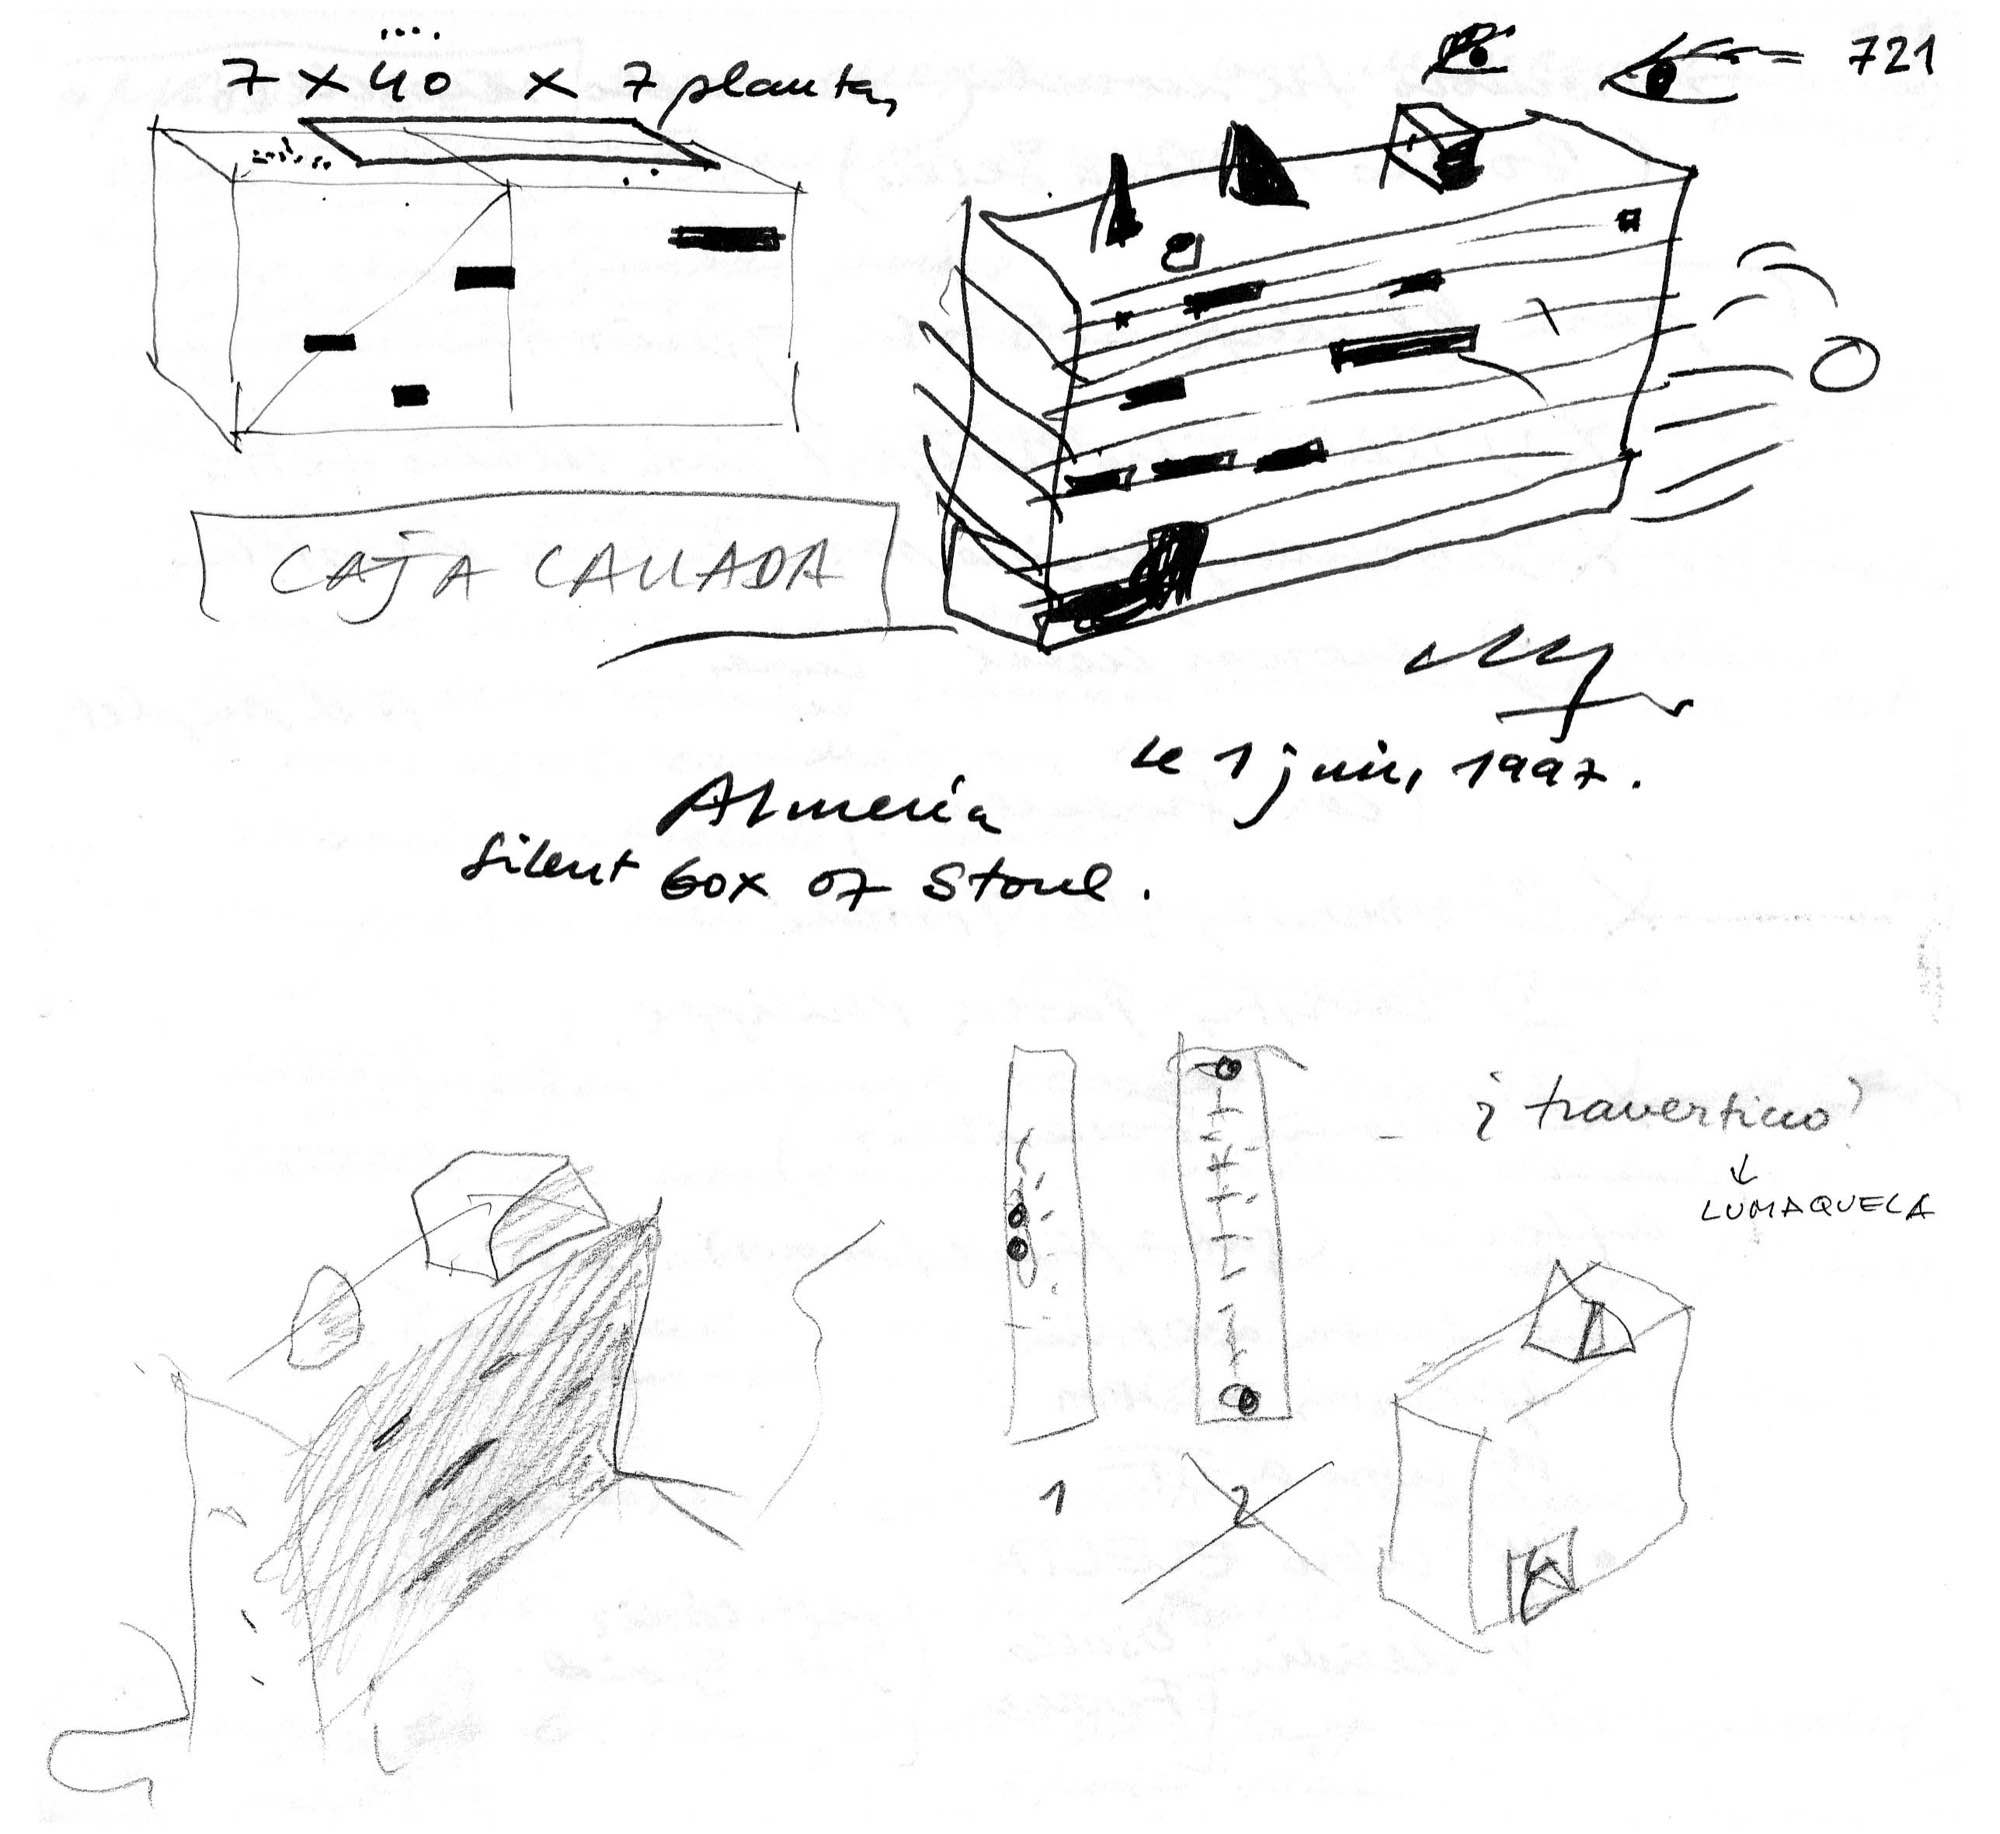 7 x 40 x 7 plantas
= 721
CAJA CALLADA
le 1 juin, 1997.
Almería
Silent box of Stone.
¿travertino?
LUMAQUELA
1
2